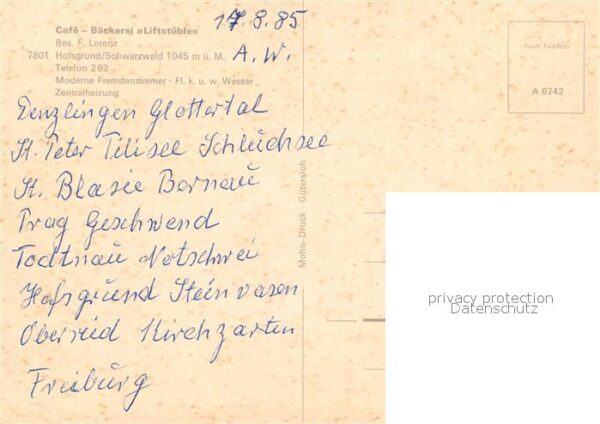 17.8.85
Café – Bäckerei »Liftstüble«
Bes. F. Lorenz
7801 Hofsgrund/Schwarzwald 1045 m ü. M.
A. W.
Telefon 262
Moderne Fremdenzimmer · Fl. k. u. w. Wasser
Zentralheizung
Nach Farbfoto
A 6742
Denzlingen Glottertal
St. Peter Titisee Schluchsee
St. Blasie Bernau
Prag Geschwend
Todtnau Notschrei
Hofsgrund Steinwasen
Oberried Kirchzarten
Freiburg
Mohn-Druck Gütersloh
privacy protection
Datenschutz